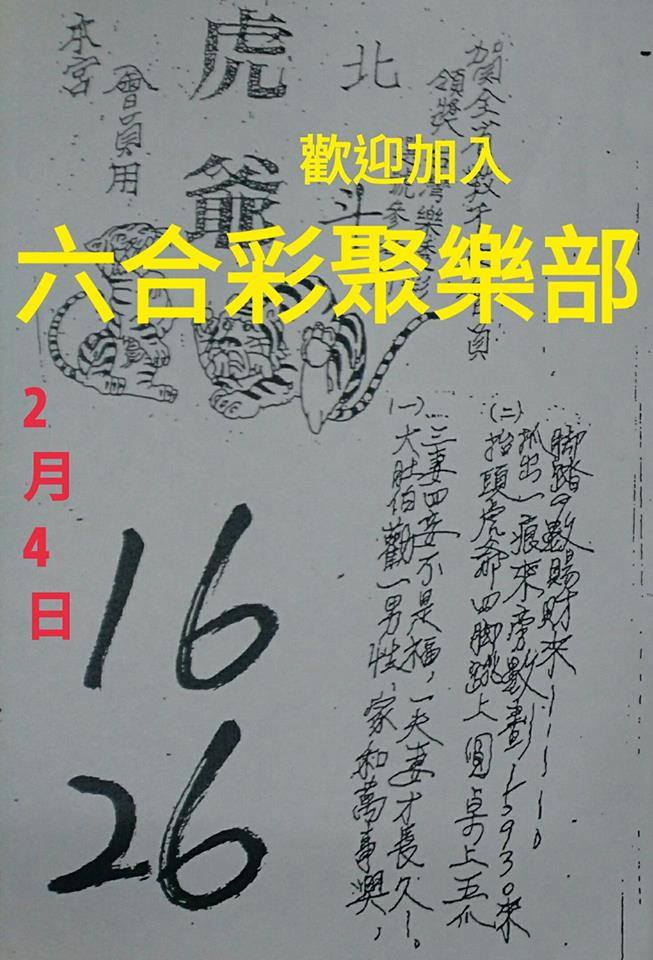 歡迎加入
六合彩聚樂部
2月4日
北斗
虎爺
本宮
會員用
(一)大肚伯勸一男性,家和萬事興,
三妻四妾不是福,一夫妻才長久!。
(二)抬頭虎爺四腳跳上圓桌上五爪
抓出一痕來旁數劃 5930來
腳踏 數賜財來!!!!。
16
26